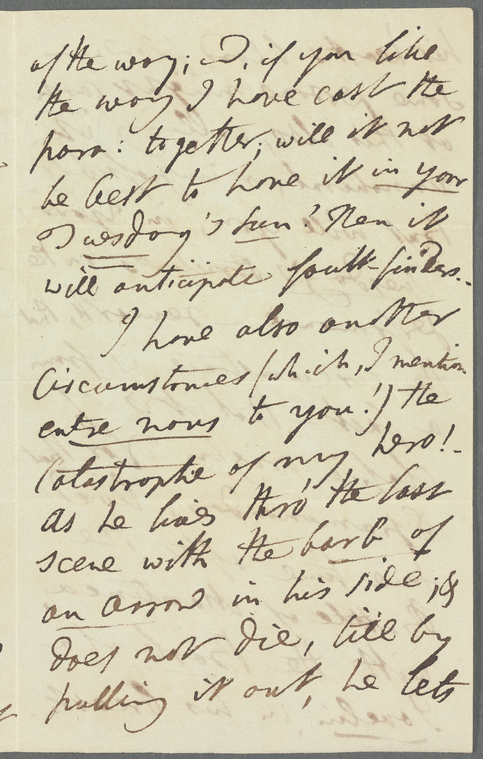 of the way; &, if you like
the way I have cast the
para: together, will it not
be best to have it in your
Tuesday's Sun? Then it
will anticipate fault-finders.-
I have also another
Circumstances (which, I mention
entre nous to you!) the
Catastrophe of my hero!-
As he lives thro' the last
scene with the barb of
an arrow in his side; &
does not die, till by
pulling it out, he lets